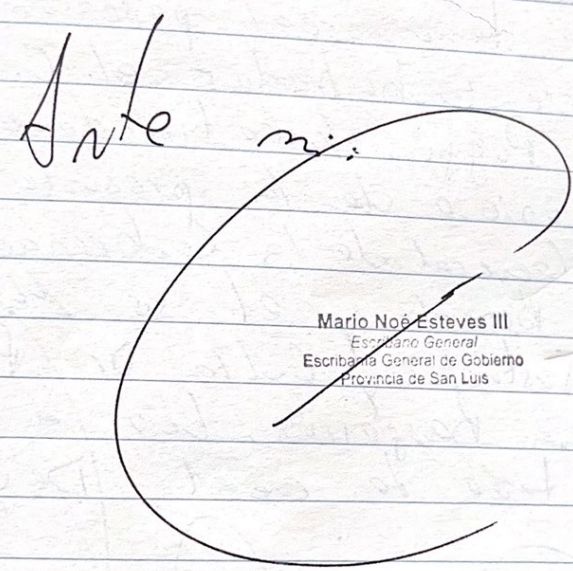 Ante mi:
Mario Noé Esteves III
Escribano General
Escribanía General de Gobierno
Provincia de San Luis